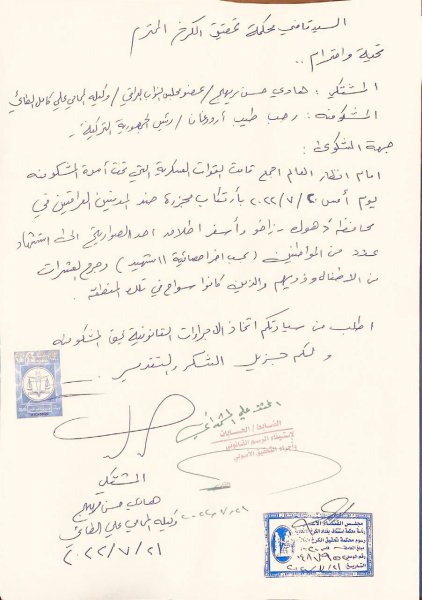 السيد قاضي محكمة تحقيق الكرخ المحترم
تحية واحترام ..
المشتكي : هادي حسن / عضو مجلس النواب العراقي / وكيله المحامي علي كامل الطائي
المشكو منه : رجب طيب أردوغان / رئيس الجمهورية التركية .
جهة الشكوى :
امام انظار العالم اجمع قامت القوات العسكرية التي تحت أمرة المشكو منه
يوم أمس ٢٠٢٢/٧/٢٠ بأرتكاب مجزرة ضد المدنيين العراقيين في
محافظة دهوك زاخو وأسفر اطلاق احد الصواريخ الى استشهاد
عدد من المواطنين ( حسب اخر احصائية شهيد ) وجرح العشرات
من الاطفال وذويهم والذين كانوا سواح في تلك المنطقة .
اطلب من سيادتكم اتخاذ الاجراءات القانونية بحق المشكو منه
ولكم جزيل الشكر والتقدير .
القاضي / الحسابات
لإستيفاء الرسم القانوني
وإجراء التحقيق الأصولي
المشتكي
هادي حسن
وكيله المحامي علي الطائي
٢٠٢٢/٧/٢١
٢٠٢٢/٧/٢١
مجلس القضاء الأعلى
رسوم محكمة تحقيق الكرخ